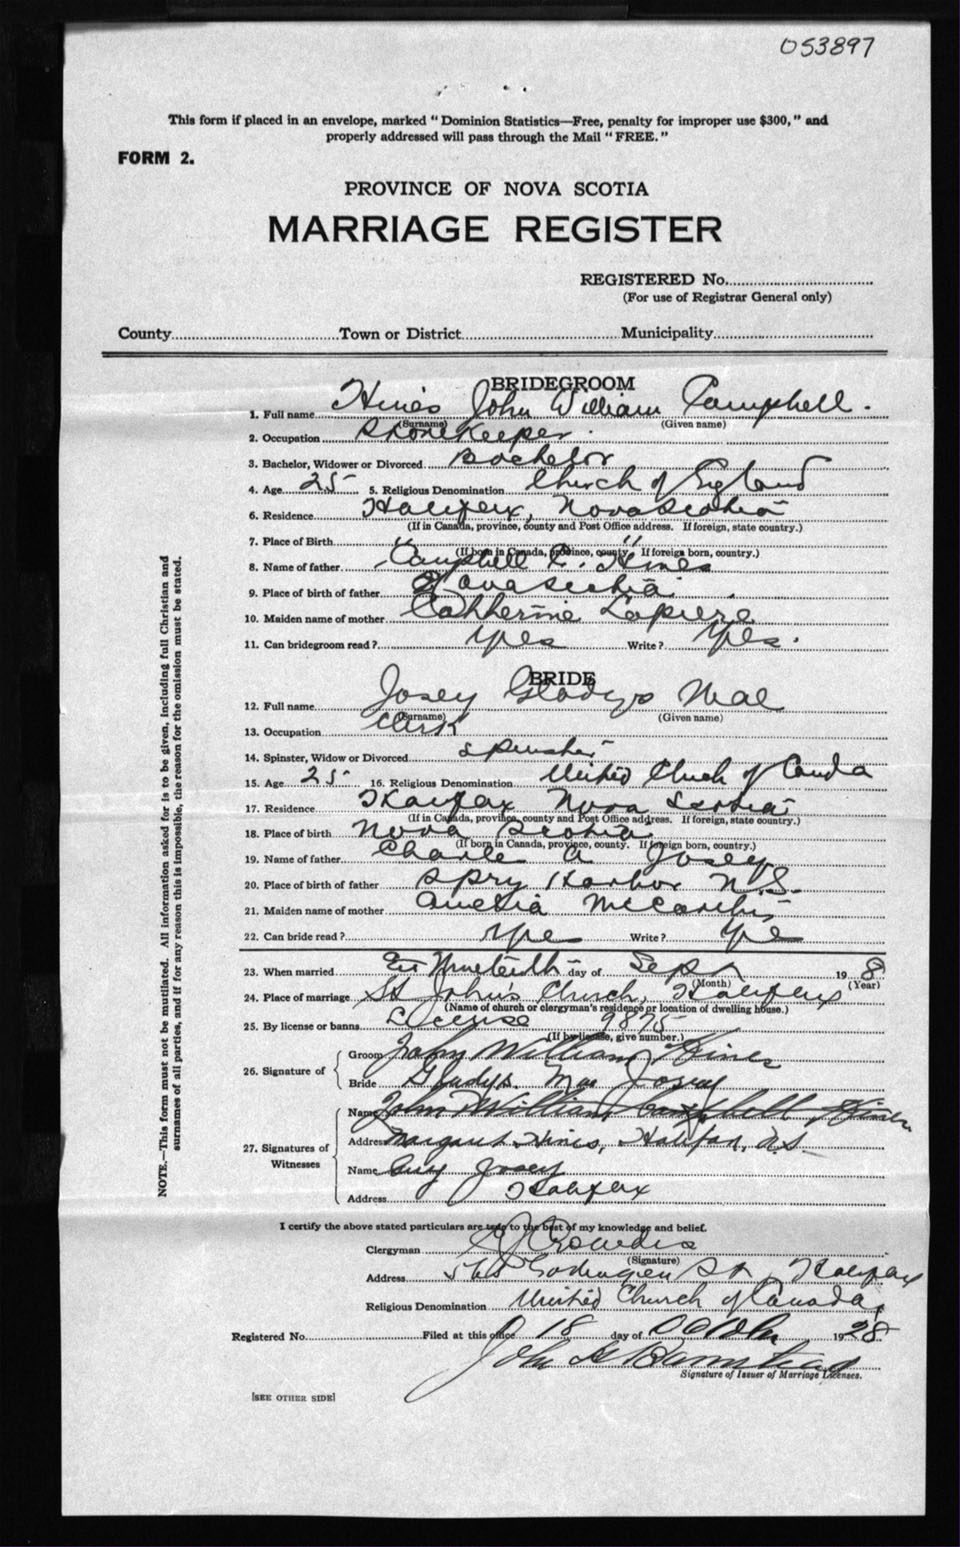 053897
This form if placed in an envelope, marked "Dominion Statistics—Free, penalty for improper use $300," and
properly addressed will pass through the Mail "FREE."
FORM 2.
PROVINCE OF NOVA SCOTIA
MARRIAGE REGISTER
REGISTERED No.
(For use of Registrar General only)
County Town or District Municipality
BRIDEGROOM
1. Full name Hines John William Campbell.
(Surname) (Given name)
2. Occupation Storekeeper.
3. Bachelor, Widower or Divorced Bachelor
4. Age 25 5. Religious Denomination Church of England
6. Residence Halifax, Nova Scotia
(If in Canada, province, county and Post Office address. If foreign, state country.)
7. Place of Birth " "
(If born in Canada, province, county. If foreign born, country.)
8. Name of father Campbell C. Hines
9. Place of birth of father Nova Scotia
10. Maiden name of mother Catherine Lapiere
11. Can bridegroom read? Yes Write? Yes.
BRIDE
12. Full name Josey Gladys Mae
(Surname) (Given name)
13. Occupation Clerk
14. Spinster, Widow or Divorced Spinster
15. Age 25 16. Religious Denomination United Church of Canada
17. Residence Halifax Nova Scotia
(If in Canada, province, county and Post Office address. If foreign, state country.)
18. Place of birth Nova Scotia
(If born in Canada, province, county. If foreign born, country.)
19. Name of father Charle A Josey
20. Place of birth of father Spry Harbor N.S.
21. Maiden name of mother Amelia
22. Can bride read? Yes Write? Yes
23. When married Nineteenth day of Sept 19 8
(Month) (Year)
24. Place of marriage St John's Church, Halifax
(Name of church or clergyman's residence or location of dwelling house.)
25. By license or banns License 9875
(If by license, give number.)
26. Signature of
Groom John William Hines
Bride Gladys. Mae Josey
27. Signatures of Witnesses
Name John William Campbell Hines
Address Margaret Hines, Halifax, N.S.
Name Guy Josey
Address Halifax
I certify the above stated particulars are true to the best of my knowledge and belief.
Clergyman
(Signature)
Address St, Halifax
Religious Denomination United Church of Canada,
Registered No. Filed at this office 18 day of October 1928
John
Signature of Issuer of Marriage Licenses.
[SEE OTHER SIDE]
NOTE.—This form must not be mutilated. All information asked for is to be given, including full Christian and
surnames of all parties, and if for any reason this is impossible, the reason for the omission must be stated.